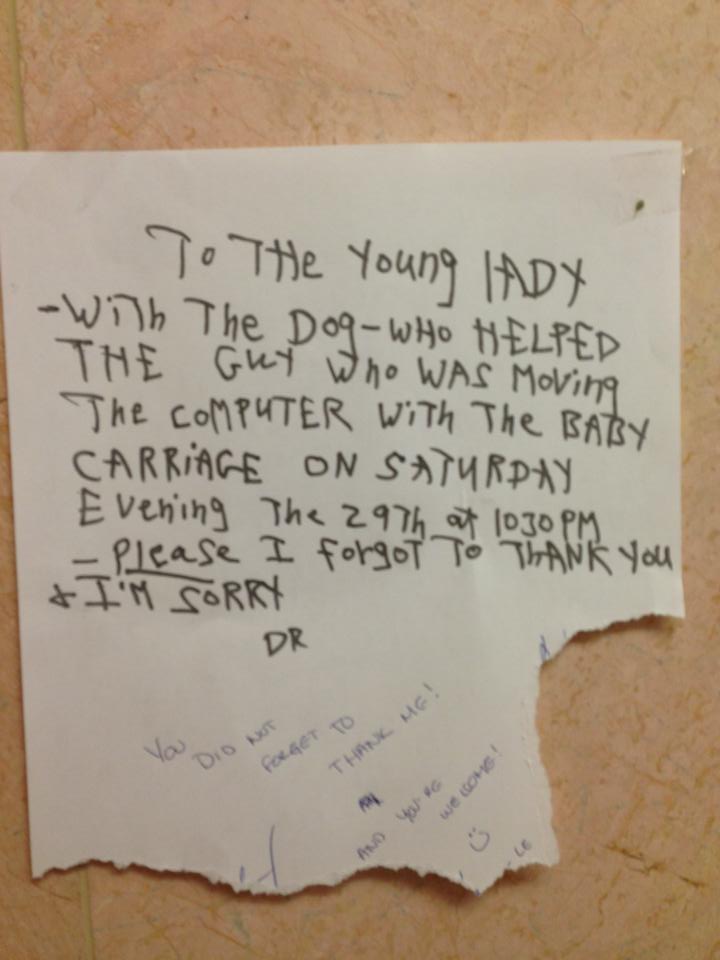 To THe Young lADY
-WiTh The Dog-WHo HELPED
THE GUY Who WAS Moving
The COMPUTER WiTH The BABY
CARRiAGE ON SATURDAY
Evening The 29Th at 1030 PM
- Please I forgoT To THANK You
& I'M SORRY
DR
YOU DID NOT
FORGET TO
THANK ME!
AND YOU'RE
WELCOME!
☺
-LE